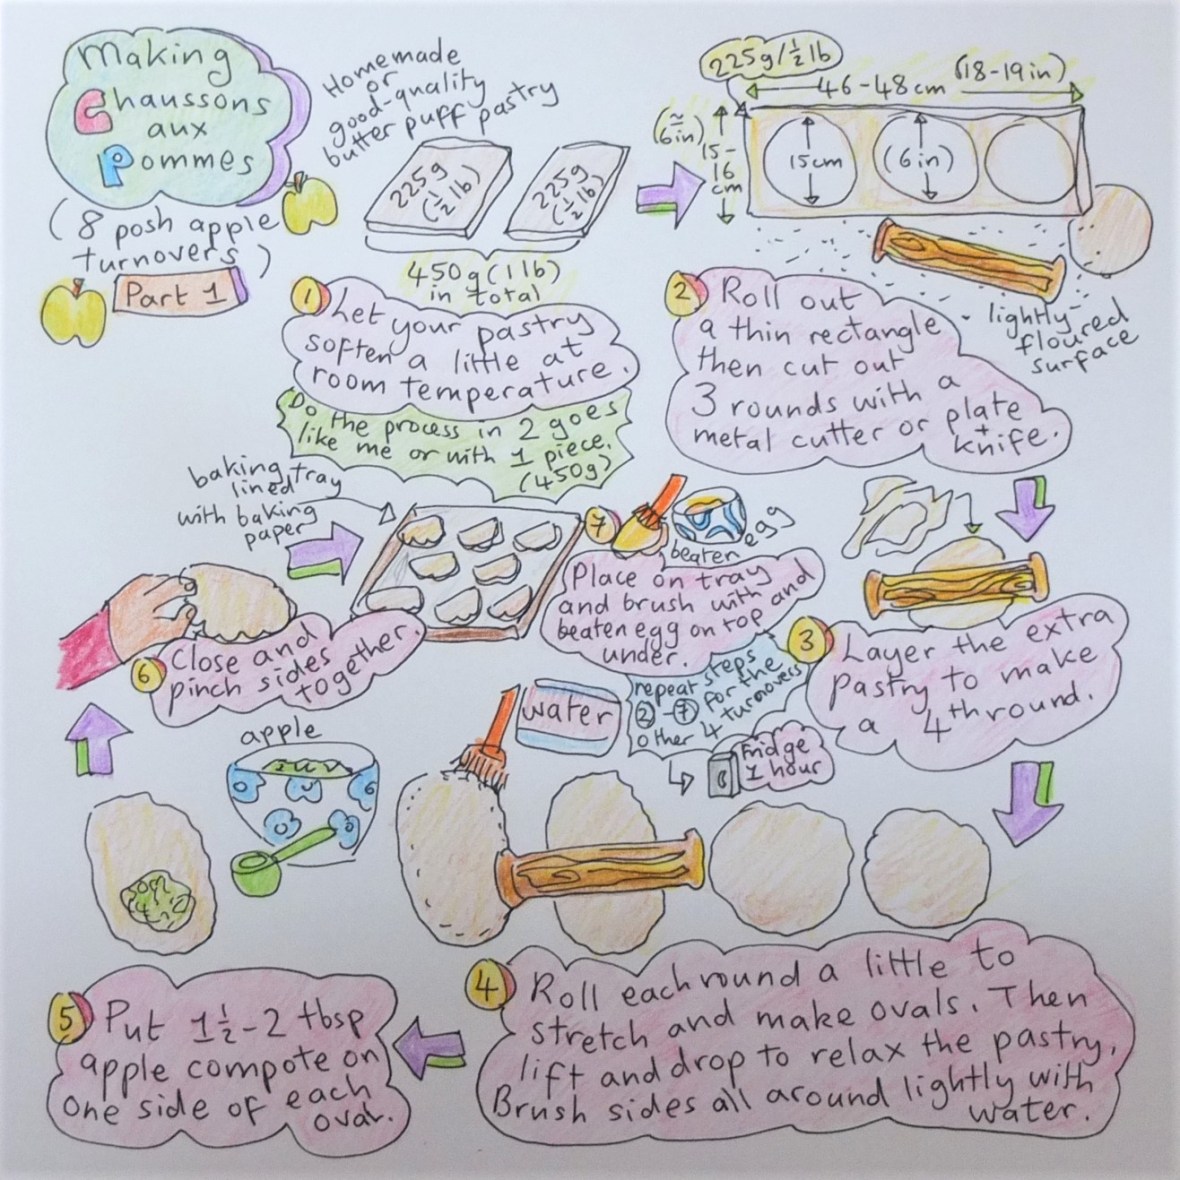 Making
Chaussons
aux
Pommes
(8 posh apple
turnovers)
Part 1
Homemade
or
good-quality
butter puff pastry
225g
(½ lb)
225g
(½ lb)
450g (1 lb)
in total
1
Let your pastry
soften a little at
room temperature.
Do the process in 2 goes
like me or with 1 piece.
(450g)
225g/½ lb
46-48 cm (18-19 in)
(≈
6in)
15-
16
cm
15cm
(6in)
lightly-
floured
surface
2
Roll out
a thin rectangle
then cut out
3 rounds with a
metal cutter or plate
+
knife.
3
Layer the extra
pastry to make
a 4th round.
4
Roll each round a little to
stretch and make ovals. Then
lift and drop to relax the pastry.
Brush sides all around lightly with
water.
water
5
Put 1½-2 tbsp
apple compote on
one side of each
oval.
apple
6
Close and
pinch sides
together.
baking tray
lined
with baking
paper
7
beaten egg
Place on tray
and brush with
beaten egg on top and
under.
repeat steps
2-7 for the
other 4 turnovers
Fridge
1 hour